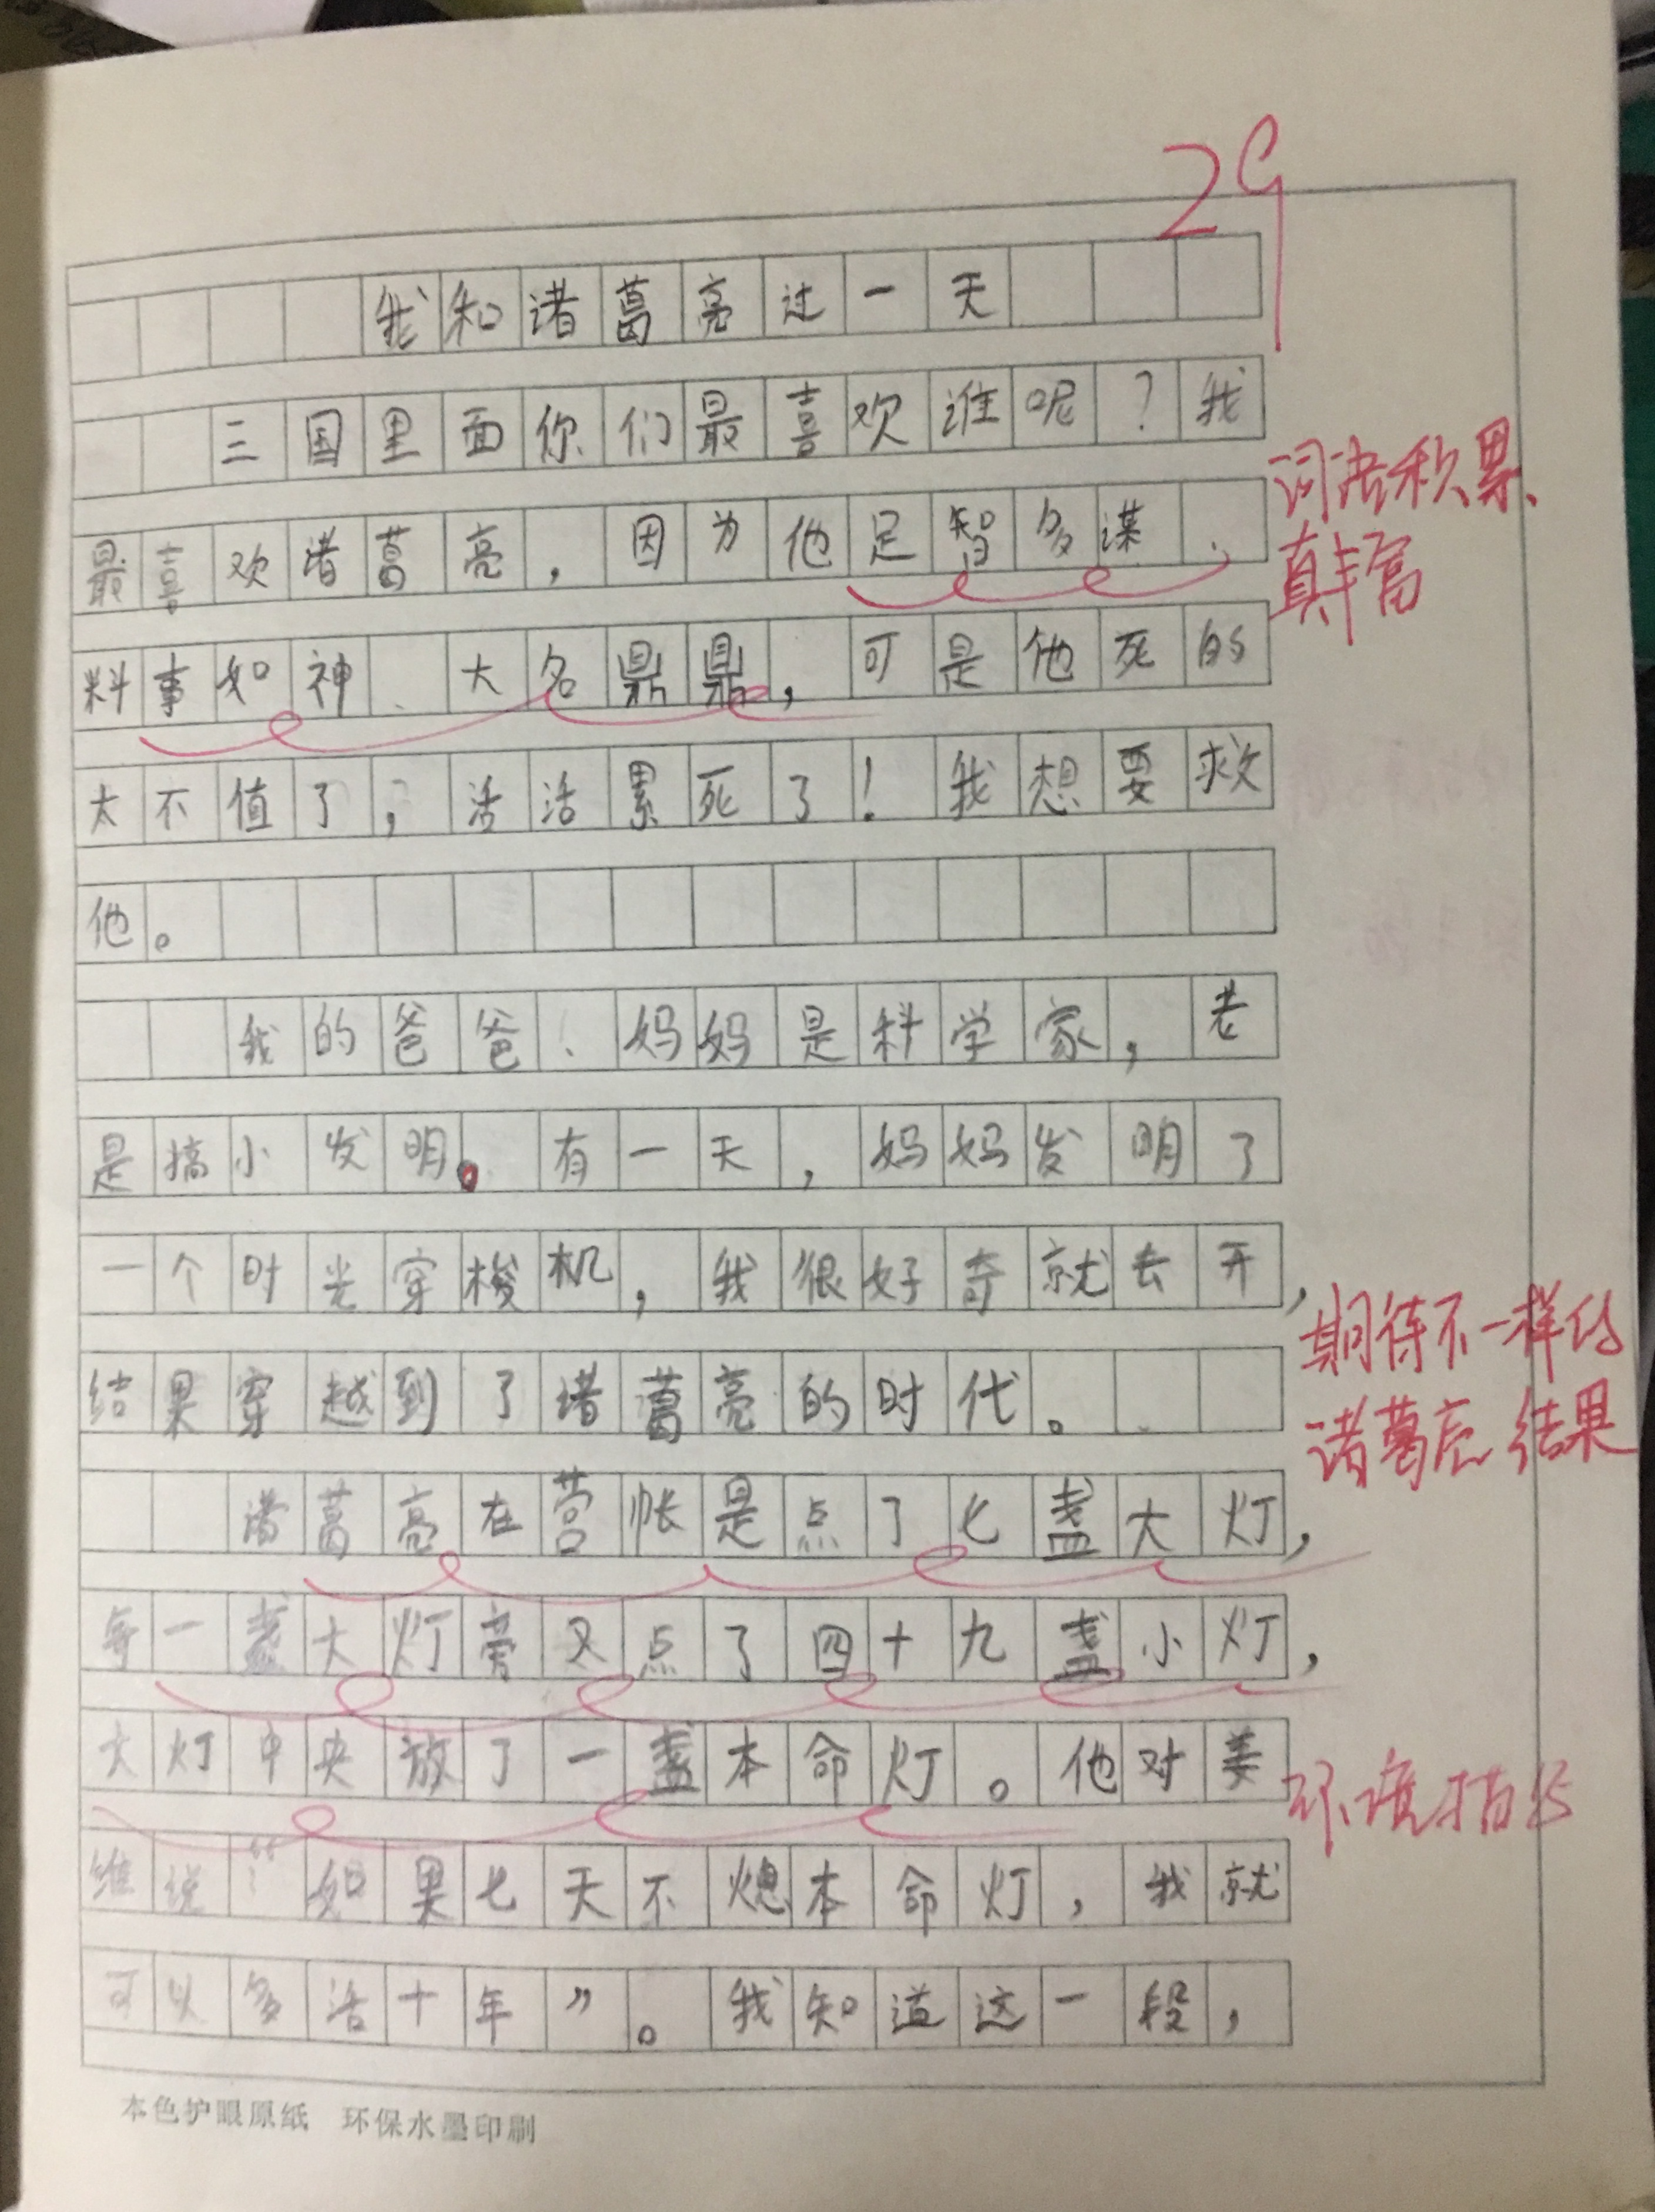 29
我和诸葛亮过一天
三国里面你们最喜欢谁呢？我
最喜欢诸葛亮，因为他足智多谋、
料事如神、大名鼎鼎，可是他死的
太不值了，活活累死了！我想要救
他。
我的爸爸、妈妈是科学家，老
是搞小发明。有一天，妈妈发明了
一个时光穿梭机，我很好奇就去开，
结果穿越到了诸葛亮的时代。
诸葛亮在营帐是点了七盏大灯，
每一盏大灯旁又点了四十九盏小灯，
大灯中央放了一盏本命灯。他对姜
维说：“如果七天不熄本命灯，我就
可以多活十年”。我知道这一段，
词语积累
真丰富
期待不一样的
诸葛亮结果
本色护眼原纸 环保水墨印刷